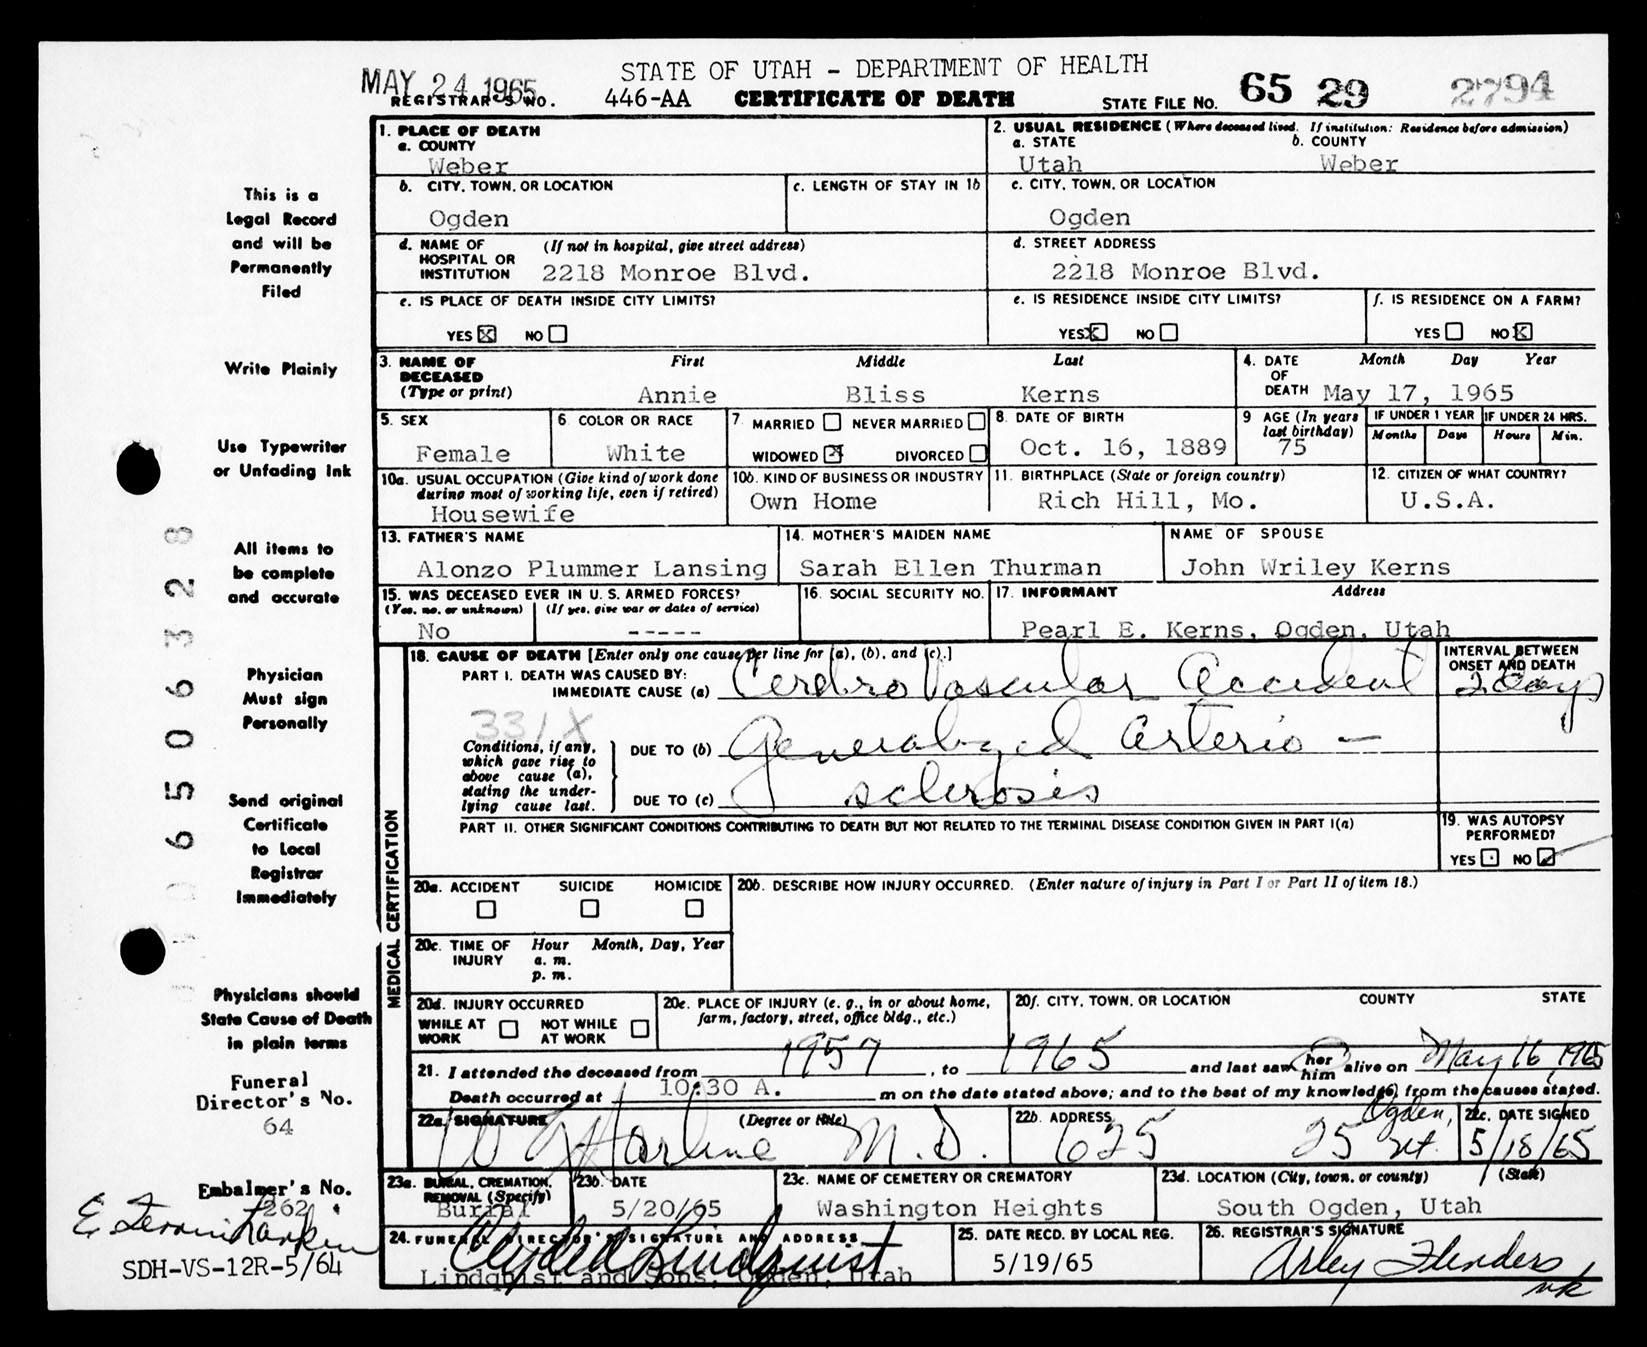 STATE OF UTAH - DEPARTMENT OF HEALTH
MAY 24 1965
REGISTRAR'S NO. 446-AA CERTIFICATE OF DEATH STATE FILE NO. 65 29 2794
1. PLACE OF DEATH
a. COUNTY
Weber
2. USUAL RESIDENCE (Where deceased lived. If institution: Residence before admission)
a. STATE b. COUNTY
Utah Weber
b. CITY, TOWN, OR LOCATION
Ogden
c. LENGTH OF STAY IN 1b
c. CITY, TOWN, OR LOCATION
Ogden
d. NAME OF HOSPITAL OR INSTITUTION (If not in hospital, give street address)
2218 Monroe Blvd.
d. STREET ADDRESS
2218 Monroe Blvd.
e. IS PLACE OF DEATH INSIDE CITY LIMITS?
YES X NO
e. IS RESIDENCE INSIDE CITY LIMITS?
YES X NO
f. IS RESIDENCE ON A FARM?
YES NO X
3. NAME OF DECEASED (Type or print)
First Middle Last
Annie Bliss Kerns
4. DATE OF DEATH Month Day Year
May 17, 1965
5. SEX
Female
6. COLOR OR RACE
White
7. MARRIED NEVER MARRIED
WIDOWED X DIVORCED
8. DATE OF BIRTH
Oct. 16, 1889
9 AGE (In years last birthday)
75
IF UNDER 1 YEAR IF UNDER 24 HRS.
Months Days Hours Min.
10a. USUAL OCCUPATION (Give kind of work done during most of working life, even if retired)
Housewife
10b. KIND OF BUSINESS OR INDUSTRY
Own Home
11. BIRTHPLACE (State or foreign country)
Rich Hill, Mo.
12. CITIZEN OF WHAT COUNTRY?
U.S.A.
13. FATHER'S NAME
Alonzo Plummer Lansing
14. MOTHER'S MAIDEN NAME
Sarah Ellen Thurman
NAME OF SPOUSE
John Wriley Kerns
15. WAS DECEASED EVER IN U. S. ARMED FORCES?
(Yes, no, or unknown) (If yes, give war or dates of service)
No -----
16. SOCIAL SECURITY NO.
17. INFORMANT Address
Pearl E. Kerns, Ogden, Utah
MEDICAL CERTIFICATION
18. CAUSE OF DEATH [Enter only one cause per line for (a), (b), and (c).]
INTERVAL BETWEEN ONSET AND DEATH
PART I. DEATH WAS CAUSED BY:
IMMEDIATE CAUSE (a) Cerebro Vascular Accident 2 days
331X
Conditions, if any, which gave rise to above cause (a), stating the underlying cause last.
DUE TO (b) Generalized Arterio-
DUE TO (c) sclerosis
PART II. OTHER SIGNIFICANT CONDITIONS CONTRIBUTING TO DEATH BUT NOT RELATED TO THE TERMINAL DISEASE CONDITION GIVEN IN PART I(a)
19. WAS AUTOPSY PERFORMED?
YES NO ✓
20a. ACCIDENT SUICIDE HOMICIDE
20b. DESCRIBE HOW INJURY OCCURRED. (Enter nature of injury in Part I or Part II of item 18.)
20c. TIME OF INJURY Hour Month, Day, Year
a. m.
p. m.
20d. INJURY OCCURRED
WHILE AT WORK NOT WHILE AT WORK
20e. PLACE OF INJURY (e. g., in or about home, farm, factory, street, office bldg., etc.)
20f. CITY, TOWN, OR LOCATION COUNTY STATE
21. I attended the deceased from 1957, to 1965 and last saw her him alive on May 16, 1965
Death occurred at 10:30 A. m on the date stated above; and to the best of my knowledge, from the causes stated.
22a. SIGNATURE (Degree or title)
M.D.
22b. ADDRESS
625 25 Ogden, Ut.
22c. DATE SIGNED
5/18/65
23a. BURIAL, CREMATION, REMOVAL (Specify)
Burial
23b. DATE
5/20/65
23c. NAME OF CEMETERY OR CREMATORY
Washington Heights
23d. LOCATION (City, town, or county) (State)
South Ogden, Utah
24. FUNERAL DIRECTOR'S SIGNATURE AND ADDRESS
Clyde Lindquist
Lindquist and Sons, Ogden, Utah
25. DATE RECD. BY LOCAL REG.
5/19/65
26. REGISTRAR'S SIGNATURE
Arley Flinders
nk
This is a
Legal Record
and will be
Permanently
Filed
Write Plainly
Use Typewriter
or Unfading Ink
All items to
be complete
and accurate
Physician
Must sign
Personally
Send original
Certificate
to Local
Registrar
Immediately
Physicians should
State Cause of Death
in plain terms
Funeral
Director's No.
64
Embalmer's No.
262
SDH-VS-12R-5/64